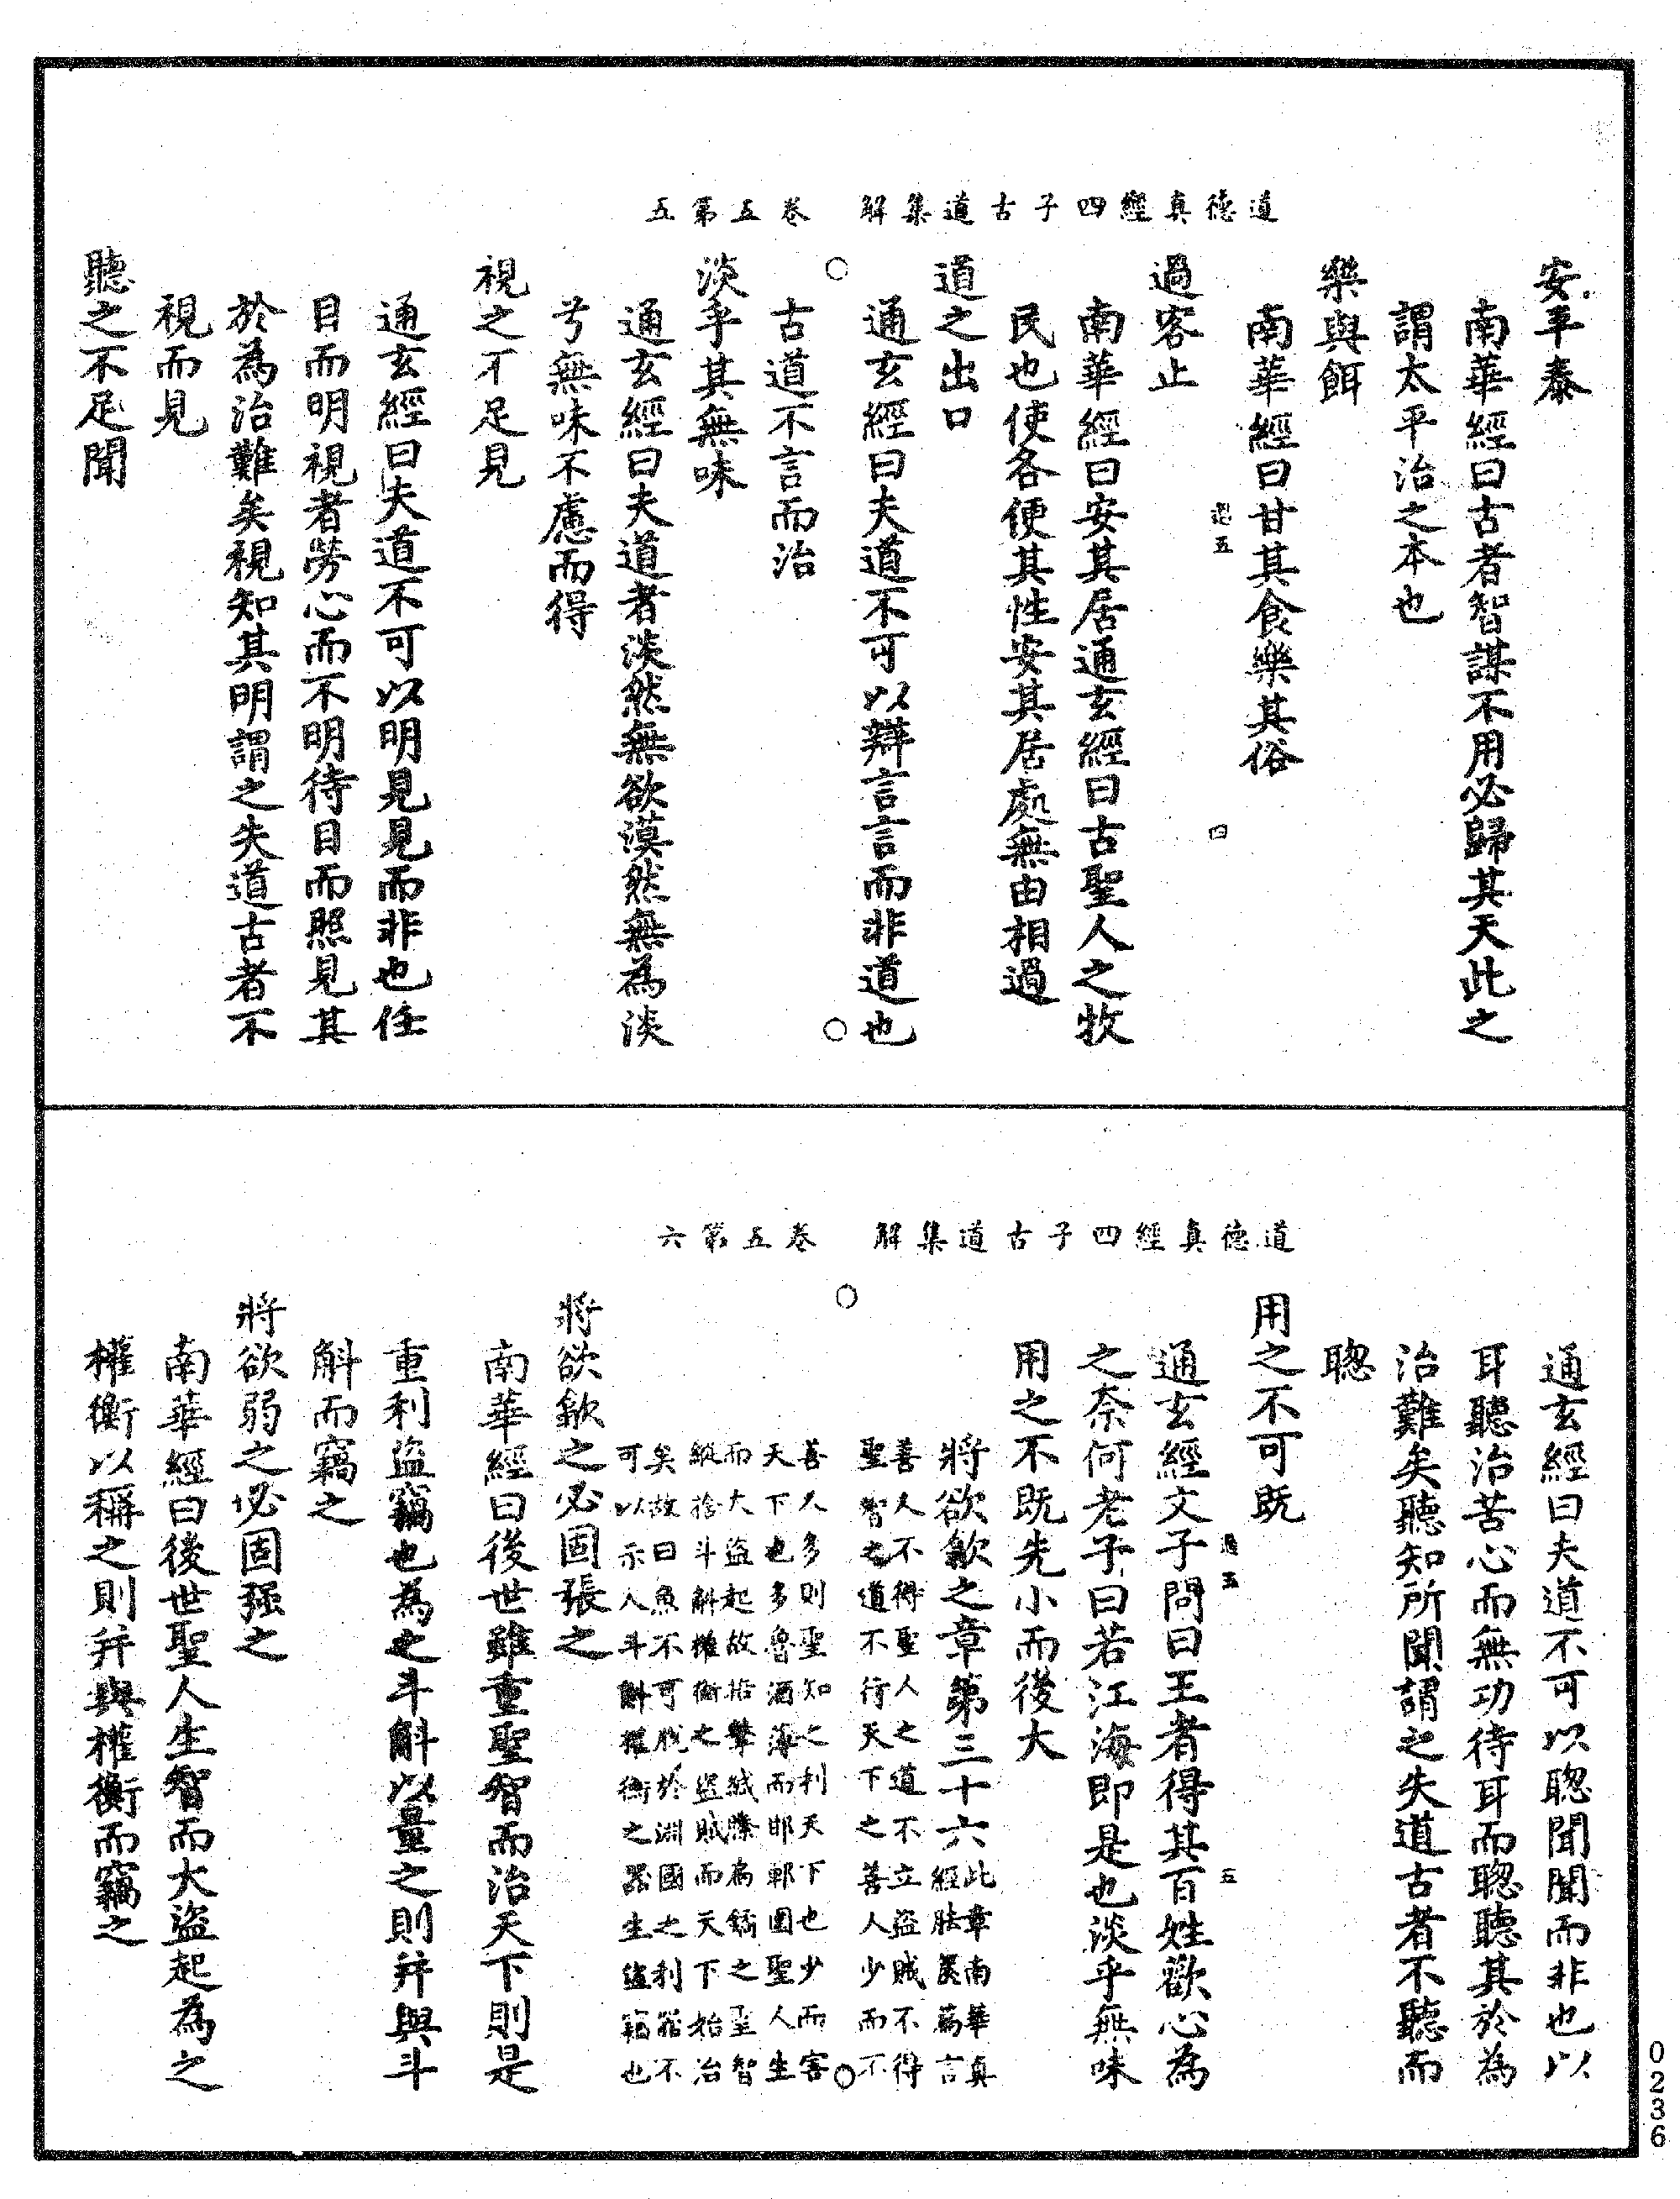 道德真經四子古道集解　卷五第五
安平泰
南華經曰古者智謀不用必歸其天此之
謂太平治之本也
樂與餌
南華經曰甘其食樂其俗
過客止
南華經曰安其居通玄經曰古聖人之牧
民也使各便其性安其居處無由相過
道之出口
通玄經曰夫道不可以辯言言而非道也
古道不言而治
淡乎其無味
通玄經曰夫道者淡然無欲漠然無為淡
兮無味不慮而得
視之不足見
通玄經曰夫道不可以明見見而非也任
目而明視者勞心而不明待目而照見其
於為治難矣視知其明謂之失道古者不
視而見
聽之不足聞
道德真經四子古道集解　卷五第六
通玄經曰夫道不可以聰聞聞而非也以
耳聽治苦心而無功待耳而聰聽其於為
治難矣聽知所聞謂之失道古者不聽而
聰
用之不可既
通玄經文子問曰王者得其百姓歡心為
之奈何老子曰若江海即是也淡乎無味
用之不既先小而後大
將欲歙之章第三十六此章南華真
經胠篋篇言
善人不得聖人之道不立盜賊不得
聖智之道不行天下之善人少而不
善人多則聖知之利天下也少而害
天下也多魯酒薄而邯鄲圍聖人生
而大盜起故掊擊緘縢扃鐍之聖智
縱捨斗斛權衡之盜賊而天下始治
矣故曰魚不可脫於淵國之利器不
可以示人斗斛權衡之器生盜竊也
將欲歙之必固張之
南華經曰後世雖重聖智而治天下則是
重利盜竊也為之斗斛以量之則并與斗
斛而竊之
將欲弱之必固强之
南華經曰後世聖人生智而大盜起為之
權衡以稱之則并與權衡而竊之
五
四
五
五
0236